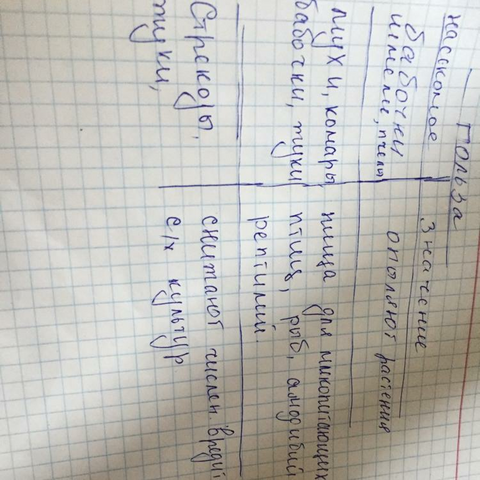 Польза
насекомое Значение
бабочки опыляют растения
шмели, пчелы
мухи, комары, пища для млекопитающих
бабочки, жуки птиц, рыб, амфибий
рептилий
Стрекозы, снижают числен. вредит
жуки, с/х культур